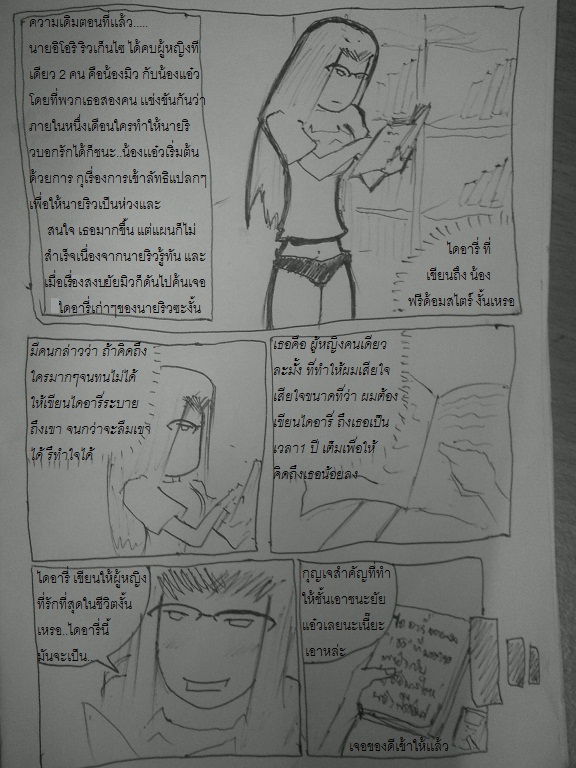 ความเดิมตอนที่แล้ว.....
นายอิโอริ ริวเก็นไซ ได้คบผู้หญิงที
เดียว 2 คน คือน้องมิว กับน้องแอ๋ว
โดยที่พวกเธอสองคน แข่งขันกันว่า
ภายในหนึ่งเดือนใครทำให้นายริ
วบอกรักได้ก็ชนะ..น้องแอ๋วเริ่มต้น
ด้วยการ กุเรื่องการเข้าลัทธิแปลกๆ
เพื่อให้นายริวเป็นห่วงและ
สนใจ เธอมากขึ้น แต่แผนก็ไม่
สำเร็จเนื่องจากนายริวรู้ทัน และ
เมื่อเรื่องสงบยัยมิวก็ดันไปค้นเจอ
ไดอารี่เก่าๆของนายริวซะงั้น
ไดอารี่ ที่
เขียนถึง น้อง
ฟรีด้อมสไตร์ งั้นเหรอ
มีคนกล่าวว่า ถ้าคิดถึง
ใครมากๆจนทนไม่ได้
ให้เขียนไดอารี่ระบาย
ถึงเขา จนกว่าจะลืมเขา
ได้ รึทำใจได้
เธอคือ ผู้หญิงคนเดียว
ละมั้ง ที่ทำให้ผมเสียใจ
เสียใจขนาดที่ว่า ผมต้อง
เขียนไดอารี่ ถึงเธอเป็น
เวลา1 ปี เต็มเพื่อให้
คิดถึงเธอน้อยลง
ไดอารี่ เขียนให้ผู้หญิง
ที่รักที่สุดในชีวิตงั้น
เหรอ..ไดอารี่นี้
มันจะเป็น...
กุญแจสำคัญที่ทำ
ให้ชั้นเอาชนะยัย
แอ๋วเลยนะเนี๊ยะ
เอาหล่ะ
เจอของดีเข้าให้แล้ว